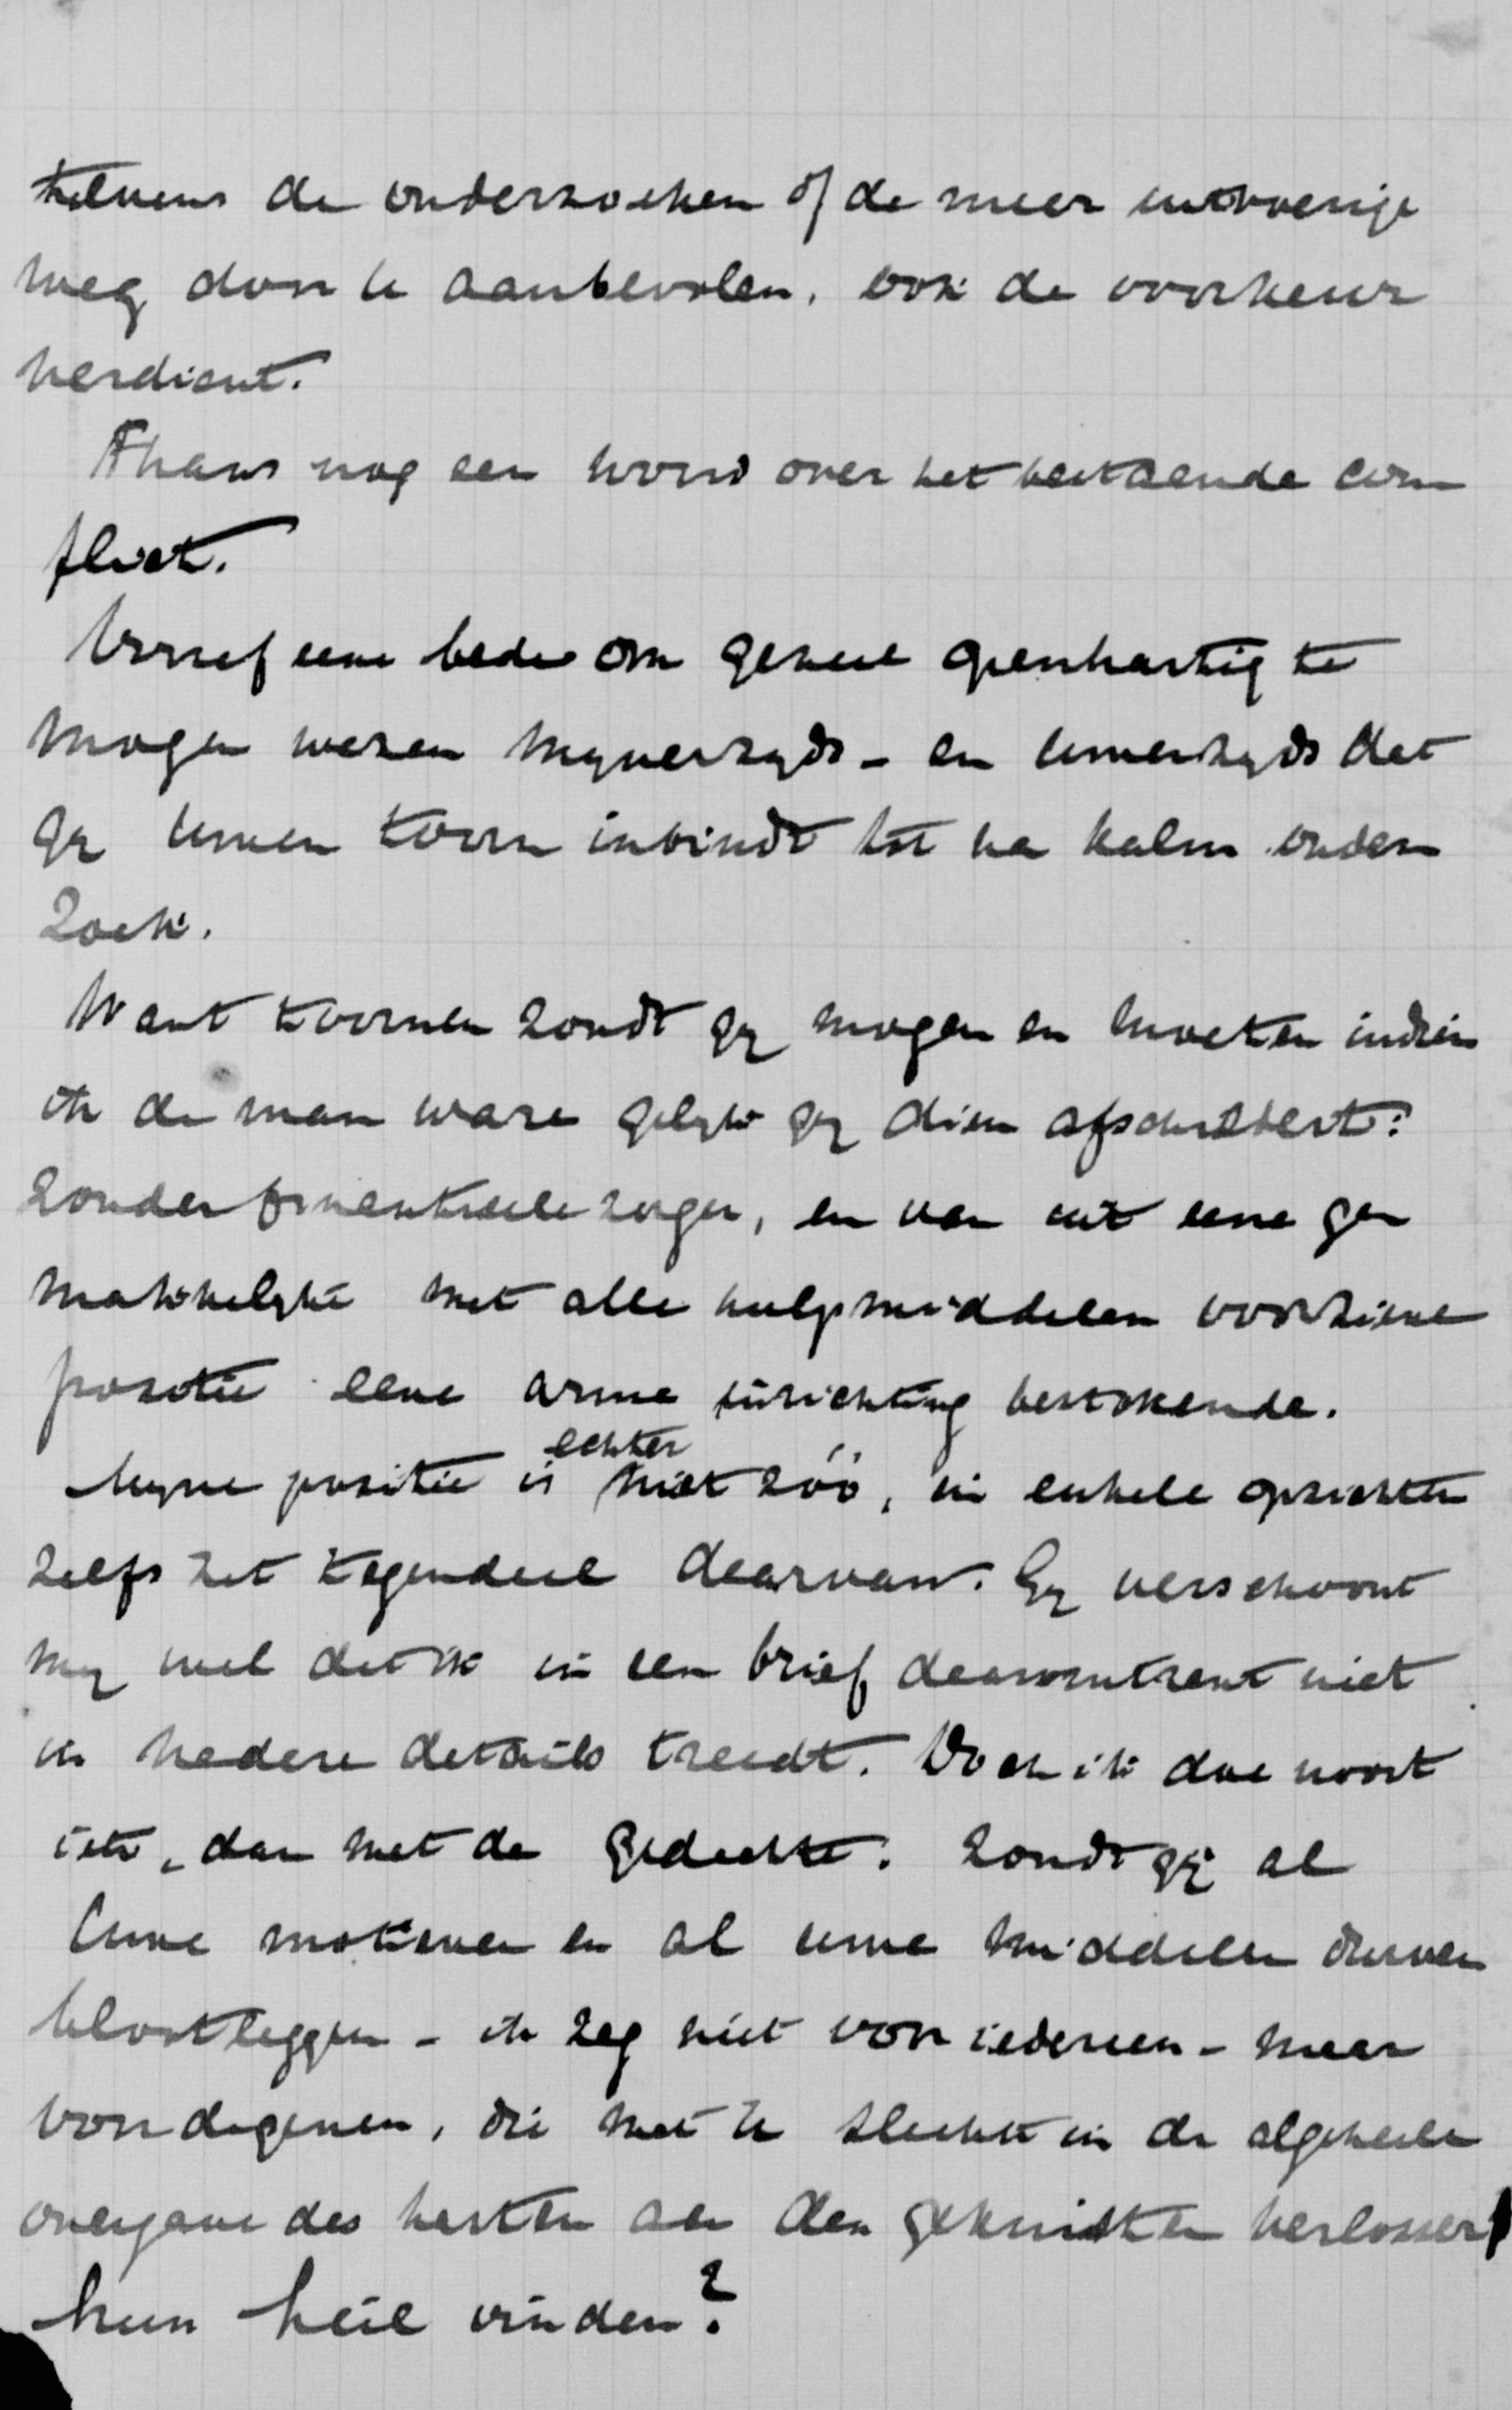 telkens de onderzoeken of de meer uitvoerige
weg door U aanbevolen, ook de voorkeur
verdient.
Thans nog een woord over het bestaande con
flict.
Vooraf eene bede om geheel openhartig te
mogen wezen mynerzyds - en Uwerzyds dat
gy Uwen toorn inbindt tot na kalm onder
zoek.
Want toornen zoudt gy mogen en moeten indien
ik de man ware gelyk gy dien afschildert:
zonder financieele zorgen, en van uit eene ge
makkelyke met alle hulpmiddelen voorziene
positie eene arme inrichting bestokende.
Myne positie is echter niet zóó, in enkele opzichten
zelfs het tegendeel daarvan. Gy verschoont
my wel dat ik in een brief daaromtrent niet
in nadere details treedt. Doch ik doe nooit
iets, dan met de gedachte: zoudt gy al
Uwe motieven en al Uwe middelen durven
blootleggen - ik zeg niet voor iedereen - maar
voor degenen, die met U slechts in de algeheele
overgave des harten aan den gekruisten Verlosser
hun heil vinden?